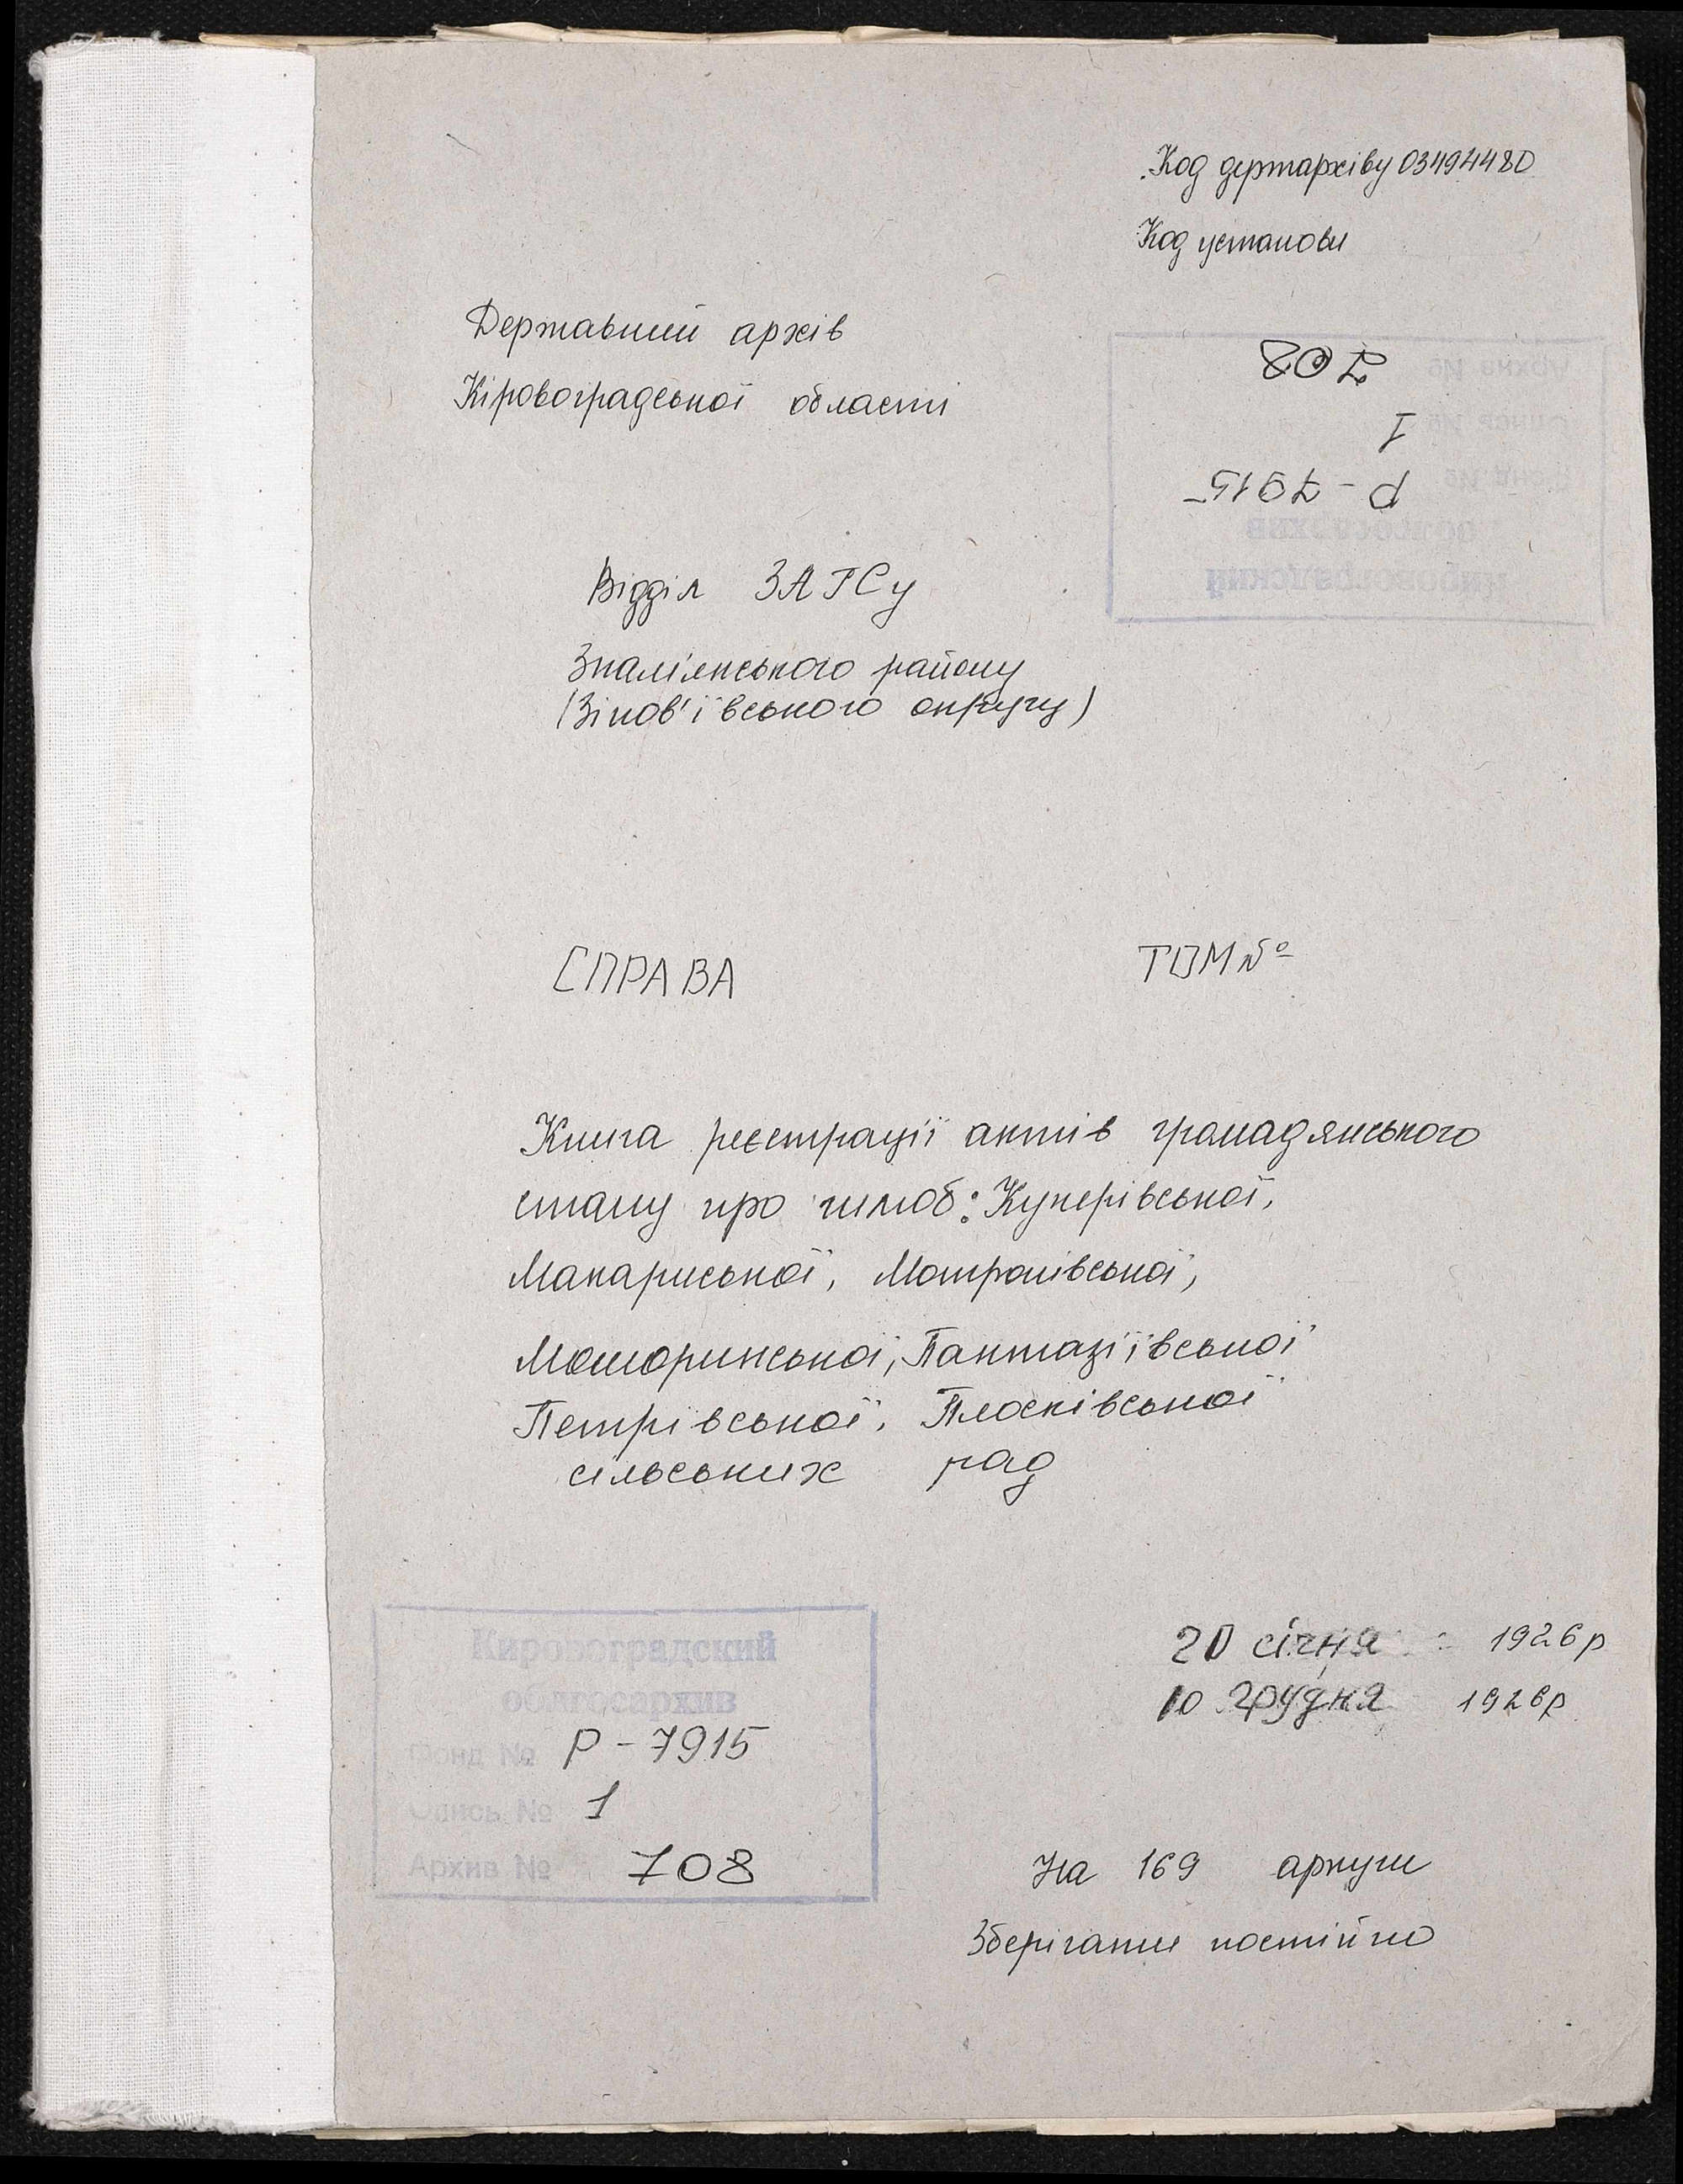 Код держархіву 03494480
Код установи
Державний архів
Кіровоградської області
Архив № 708
Опись № 1
Фонд № Р-7915
облгосархив
Кировоградский
Відділ ЗАГСу
Знам'янського району
(Зінов'ївського округу)
СПРАВА ТОМ №
Книга реєстрації актів громадянського
стану про шлюб: Куперівської,
Макариської, Мотронівської,
Мошоринської, Пантазіївської
Петрівської, Плосківської
сільських рад
20 січня 1926р
10 грудня 1926р
Кировоградский
облгосархив
Фонд № Р-7915
Опись № 1
Архив № 708
На 169 аркуш
Зберігання постійно